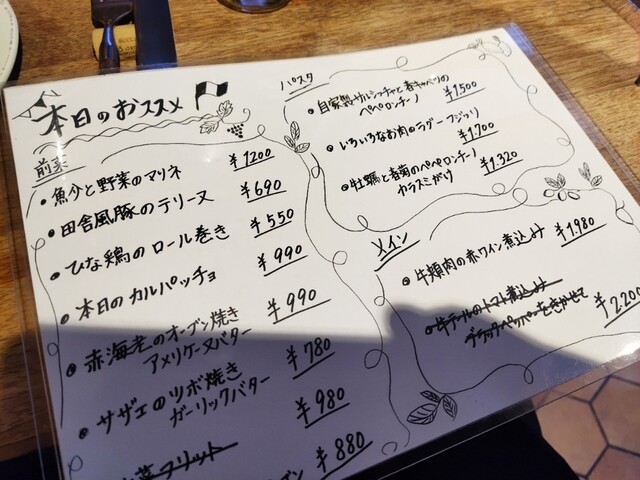 本日のおススメ
前菜
・魚介と野菜のマリネ ¥1200
・田舎風豚のテリーヌ ¥690
・ひな鶏のロール巻き ¥550
・本日のカルパッチョ ¥990
・赤海老のオーブン焼き ¥990
アメリケーヌバター
・サザエのツボ焼き ¥780
ガーリックバター
菜フリット ¥980
ブン ¥880
パスタ
・自家製サルシッチャと春キャベツの ¥1,500
ペペロンチーノ
・いろいろなお肉のラグー フジッリ ¥1,700
・牡蠣と春菊のペペロンチーノ ¥1,320
カラスミがけ
メイン
・牛頬肉の赤ワイン煮込み ¥1,980
・牛テールのトマト煮込み ¥2,200
ブラックペッパーをきかせて